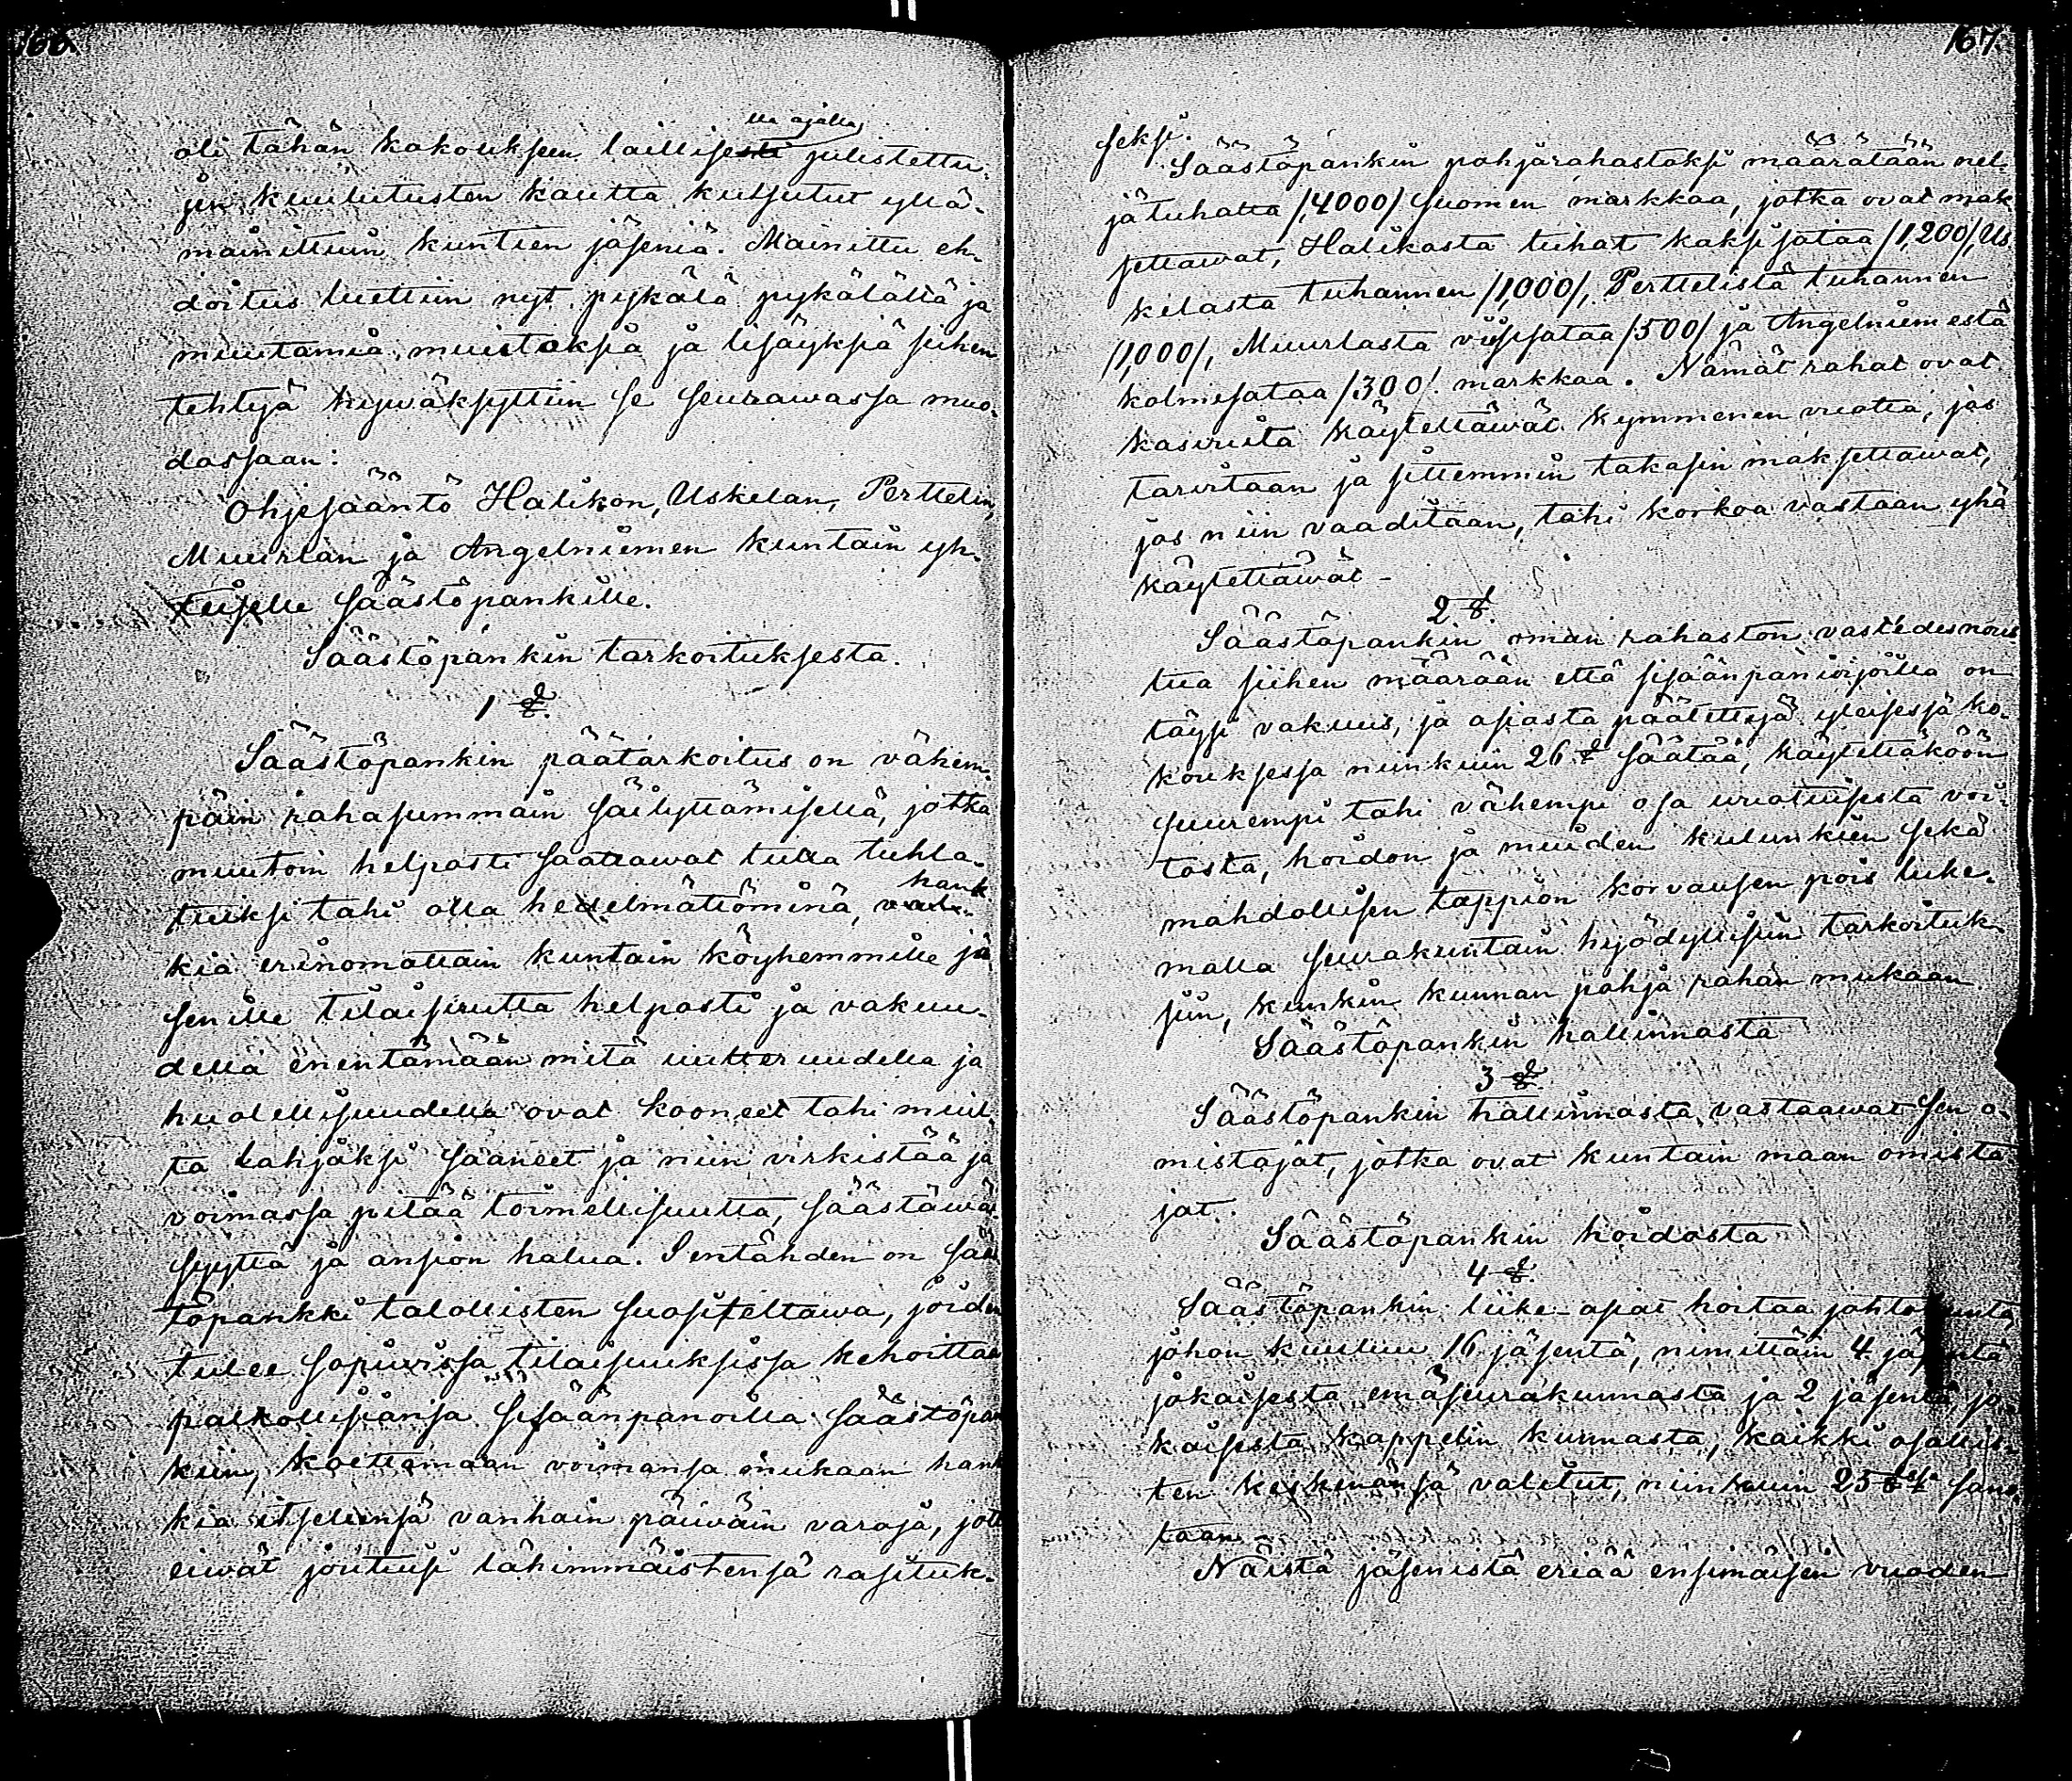 166.
oli tähän kokoukseen laillisella ajalla julistettu-
jen kuulutusten kautta kutsutut yllä-
mainittuin kuntien jäseniä. Mainittu eh-
doitus luettiin nyt pykälä pykälältä ja
muutamia muutoksia ja lisäyksiä siihen
tehtyä hywäksyttiin se seurawassa muo-
dossaan:
Ohjesääntö Halikon, Uskelan, Perttelin,
Muurlan ja Angelniemen kuntain yh-
teiselle säästöpankille.
Säästöpankin tarkoituksesta.
1 §.
Säästöpankin päätarkoitus on vähem-
päin rahasummain säilyttämisellä, jotka
muutoin helposti saattawat tulla tuhla-
tuiksi tahi olla hedelmättöminä, hank-
kia erinomattain kuntain köyhemmille jä
senille tilaisuutta helposti ja vakuu-
della enentämään mitä uutteruudella ja
huolellisuudella ovat kooneet tahi muul-
ta lahjaksi saaneet ja niin virkistää ja
voimassa pitää toimellisuutta, säästäwäi-
syyttä ja ansion halua. Sentähden on sääs
töpankki talollisten suositeltawa, joiden
tulee sopiwissa tilaisuuksissa kehoittaa
palkollisiansa sisäänpanoilla säästöpan
kiin, koettamaan voimansa mukaan hank
kia itsellensä vanhain päiwäin varoja, jott
eiwät joutuisi lähimmäistensä rasituk-
167.
seksi.
Säästöpankin pohjarahastoksi määrätään nel-
jätuhatta /4000/ Suomen markkaa, jotka ovat mak
settawat, Halikosta tuhat kaksisataa /1,200/, Us
kelasta tuhannen /1,000/, Perttelistä tuhannen
/1,000/, Muurlasta viisisataa /500/ ja Angelniemestä
kolmesataa /300/ markkaa. Nämät rahat ovat
kasvuita käytettäwät kymmenen vuotta, jos
tarvitaan ja sittemmin takasin maksettawat,
jos niin vaaditaan, tahi korkoa vastaan yhä
käytettäwät -
2 §.
Säästöpankin oman rahaston vastedes nous
tua siihen määrään että sisäänpaniojoilla on
täysi vakuus, ja asiasta päätettyä yleisessä ko-
kouksessa niinkuin 26 § säätää, käytettäköön
suurempi tahi vähempi osa vuotuisesta voi-
tosta, hoidon ja muiden kulunkien sekä
mahdollisen tappion korvausen pois luke-
malla seurakuntain hyödyllisiin tarkoituk-
siin, kunkin kunnan pohja rahan mukaan.
Säästöpankin hallinnasta
3 §.
Säästöpankin hallinnasta vastaawat sen o-
mistajat, jotka ovat kuntain maan omista
jat.
Säästöpankin hoidosta
4 §.
Säästöpankin liike-asiat hoitaa johtokunta,
johon kuuluu 16 jäsentä, nimittäin 4 jäsentä
jokaisesta emäseurakunnasta ja 2 jäsentä jo-
kaisesta kappelin kunnasta, kaikki osallis-
ten keskenänsä valitut, niinkuin 25 § sano-
taan -
Näistä jäsenistä eriää ensimäisen vuoden